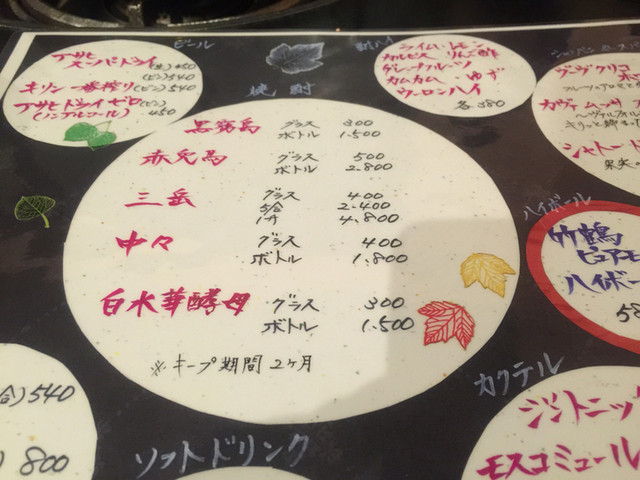 ビール
アサヒ
スーパードライ (生) 450
(ビン) 540
キリン一番搾り (ビン) 540
アサヒドライゼロ (ビン)
(ノンアルコール) 450
酎ハイ
ライム・レモン
カルピス りんご酢
グレープフルーツ
カムカム・ゆず
ウーロンハイ
各380
焼酎
黒霧島 グラス 300
ボトル 1.500
赤兎馬 グラス 500
ボトル 2.800
三岳 グラス 400
5合 2.400
1升 4.800
中々 グラス 400
ボトル 1.800
白水華酵母 グラス 300
ボトル 1.500
※キープ期間 2ヶ月
ヴーヴクリコ
シャトー
ハイボール
竹鶴
ピュアモ
ハイボー
58
カクテル
ジントニック
モスコミュール
ソフトドリンク
合) 540
) 800